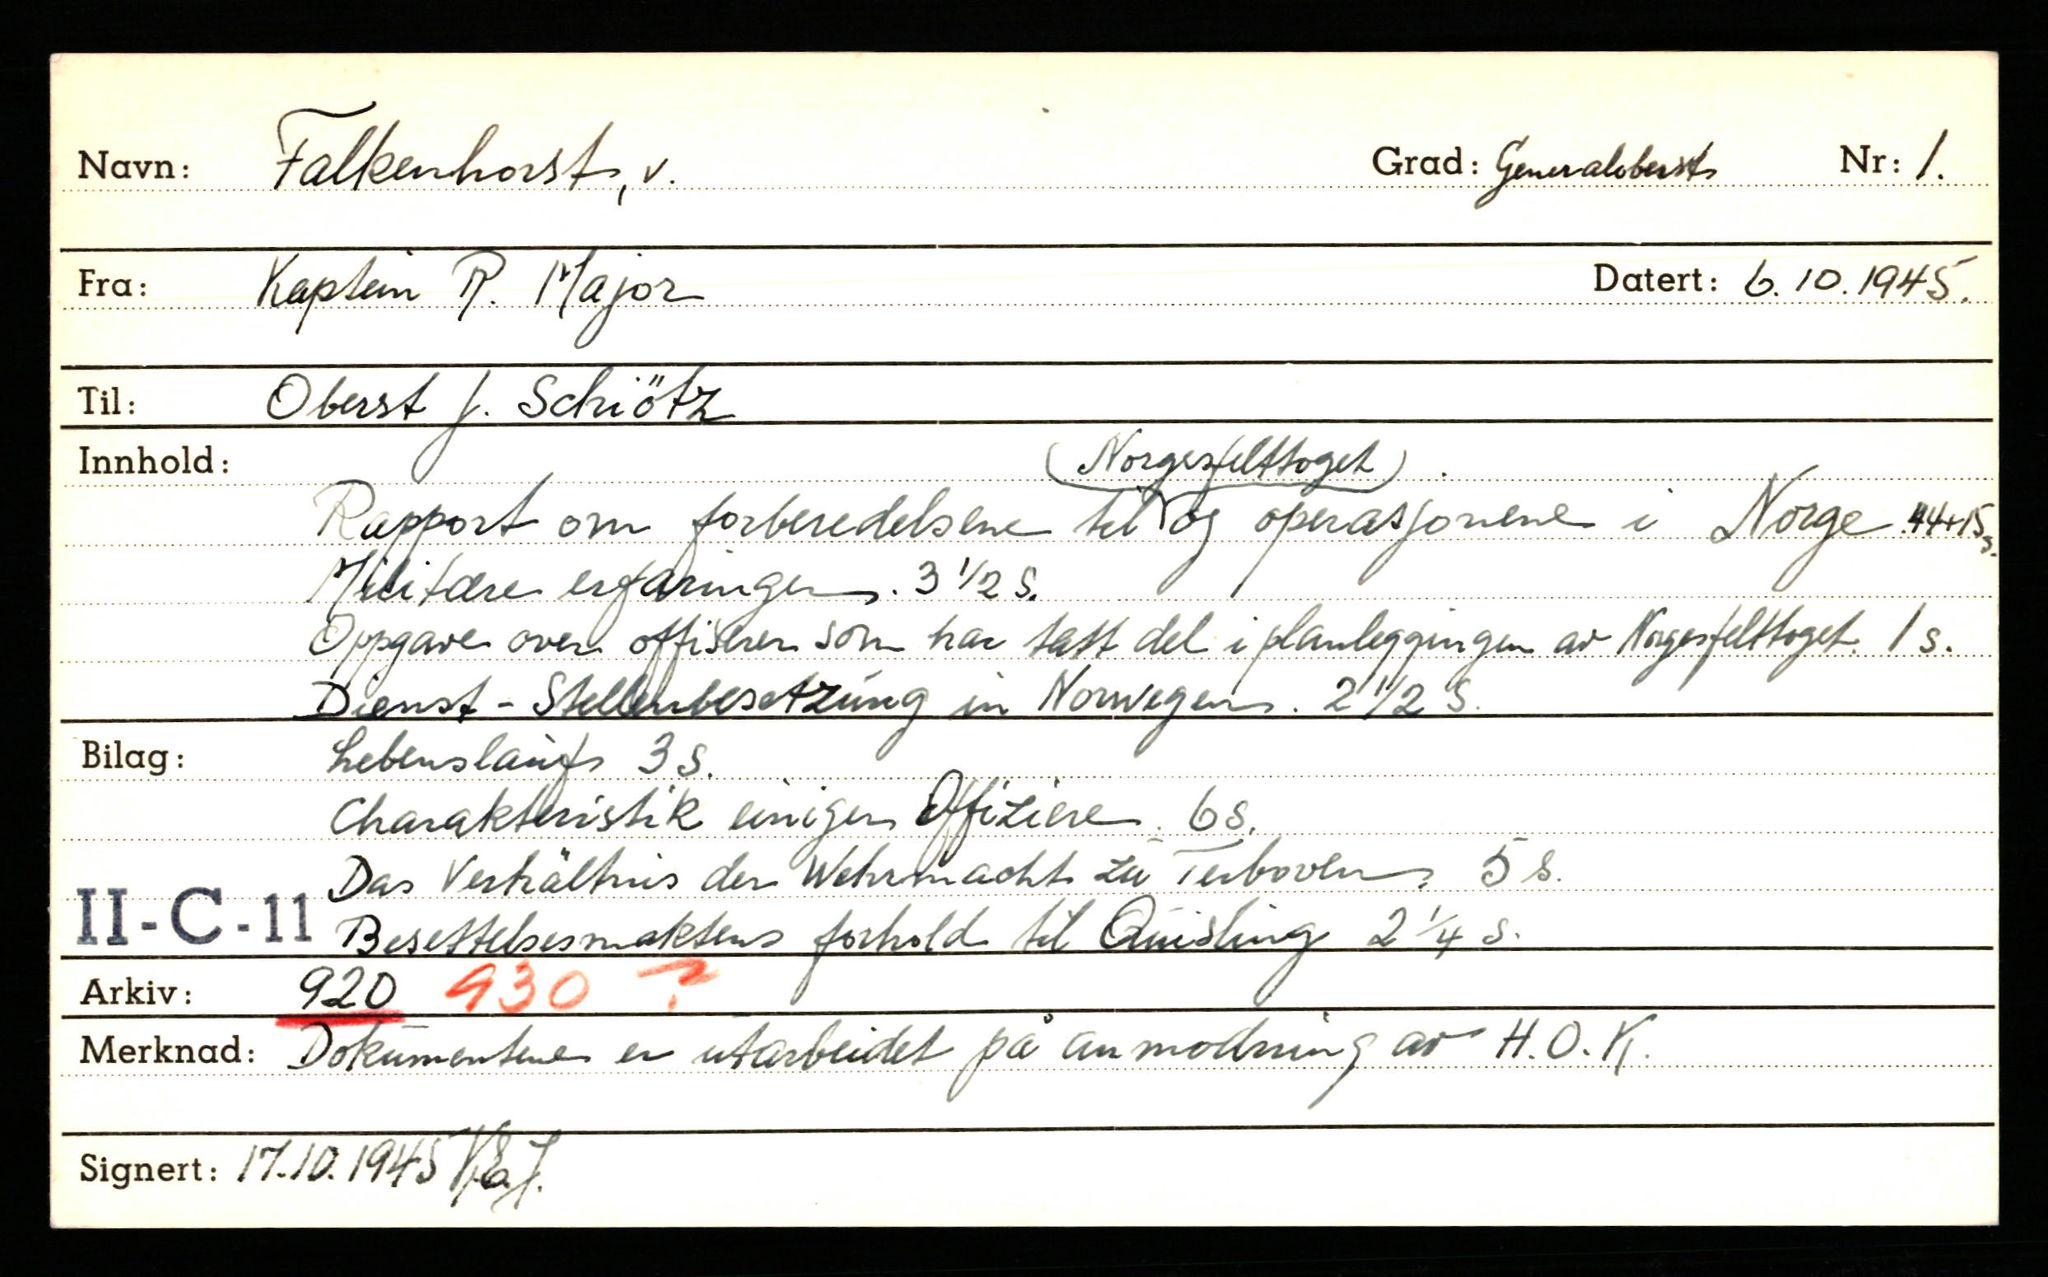 Navn: Falkenhorst, v. Grad: Generaloberst Nr: 1.
Fra: Kaptein R. Major Datert: 6.10.1945.
Til: Oberst J. Schiötz
Innhold: (Norgesfelttoget)
Rapport om forberedelsene til og operasjonene i Norge 44+15 s.
Militære erfaringer. 3 1/2 s.
Oppgave over offiserer som har tatt del i planleggingen av Norgesfelttoget. 1 s.
Dienst-Stellenbesetzung in Norwegen. 2 1/2 s.
Bilag: Lebenslauf 3 s.
Charakteristik einiger Offiziere. 6 s.
Das Verhältnis der Wehrmacht zu Terboven. 5 s.
II-C-11 Besettelsesmaktens forhold til Quisling 2 1/4 s.
Arkiv: 920 930 ?
Merknad: Dokumentene er utarbeidet på anmodning av H.O.K.
Signert: 17.10.1945